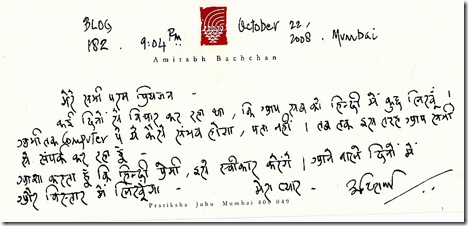 BLOG October 22,
182. 9:04 PM 2008. Mumbai
Amitabh Bachchan
मेरे सभी परम प्रियजन -
कई दिनों से विचार कर रहा था, कि आप सब को हिन्दी में कुछ लिखूं।
अभी तक Computer पे ये कैसे संभव होगा, पता नहीं। तब तक इस तरह आप सभी
से संपर्क कर रहा हूँ -
आशा करता हूँ कि हिन्दी प्रेमी, इसे स्वीकार करेंगे। आने वाले दिनों में
और विस्तार में लिखूंगा - मेरा प्यार -
Pratiksha Juhu Mumbai 400 049